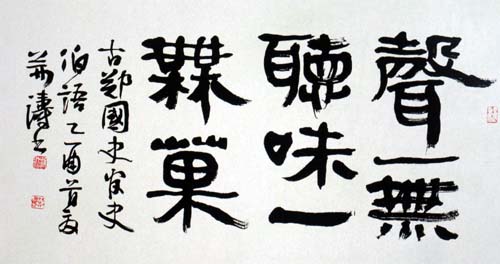 聲一無
聽味一
無菓
古鄭國史官史
伯語乙酉首夏
濤书